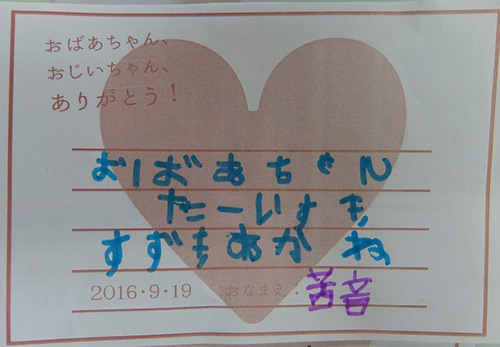 おばあちゃん、
おじいちゃん、
ありがとう！
おばあちゃん
だーいすき
すずきあかね
2016・9・19 おなまえ・